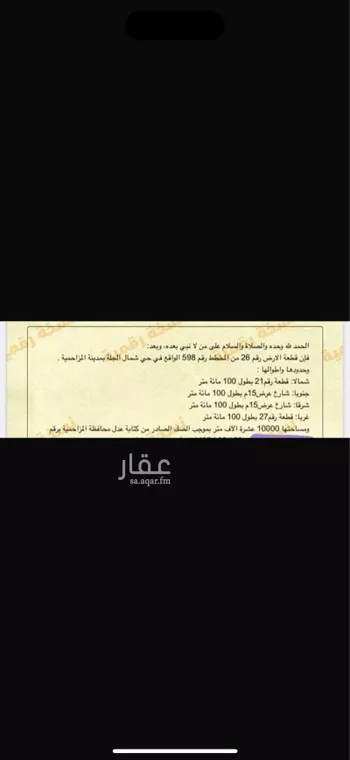 الحمد لله وحده والصلاة والسلام على من لا نبي بعده، وبعد:
فإن قطعة الارض رقم 26 من المخطط رقم 598 الواقع في حي شمال الجلة بمدينة المزاحمية .
وحدودها واطوالها :
شمالا: قطعة رقم21 بطول 100 مائة متر
جنوبا: شارع عرض15م بطول 100 مائة متر
شرقا: شارع عرض15م بطول 100 مائة متر
غربا: قطعة رقم27 بطول 100 مائة متر
ومساحتها 10000 عشرة الاف متر بموجب الصك الصادر من كتابة عدل محافظة المزاحمية برقم
عقار
sa.aqar.fm